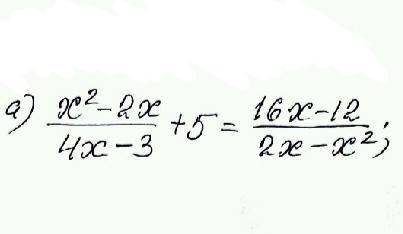 а) \frac{x^2-2x}{4x-3}+5=\frac{16x-12}{2x-x^2};